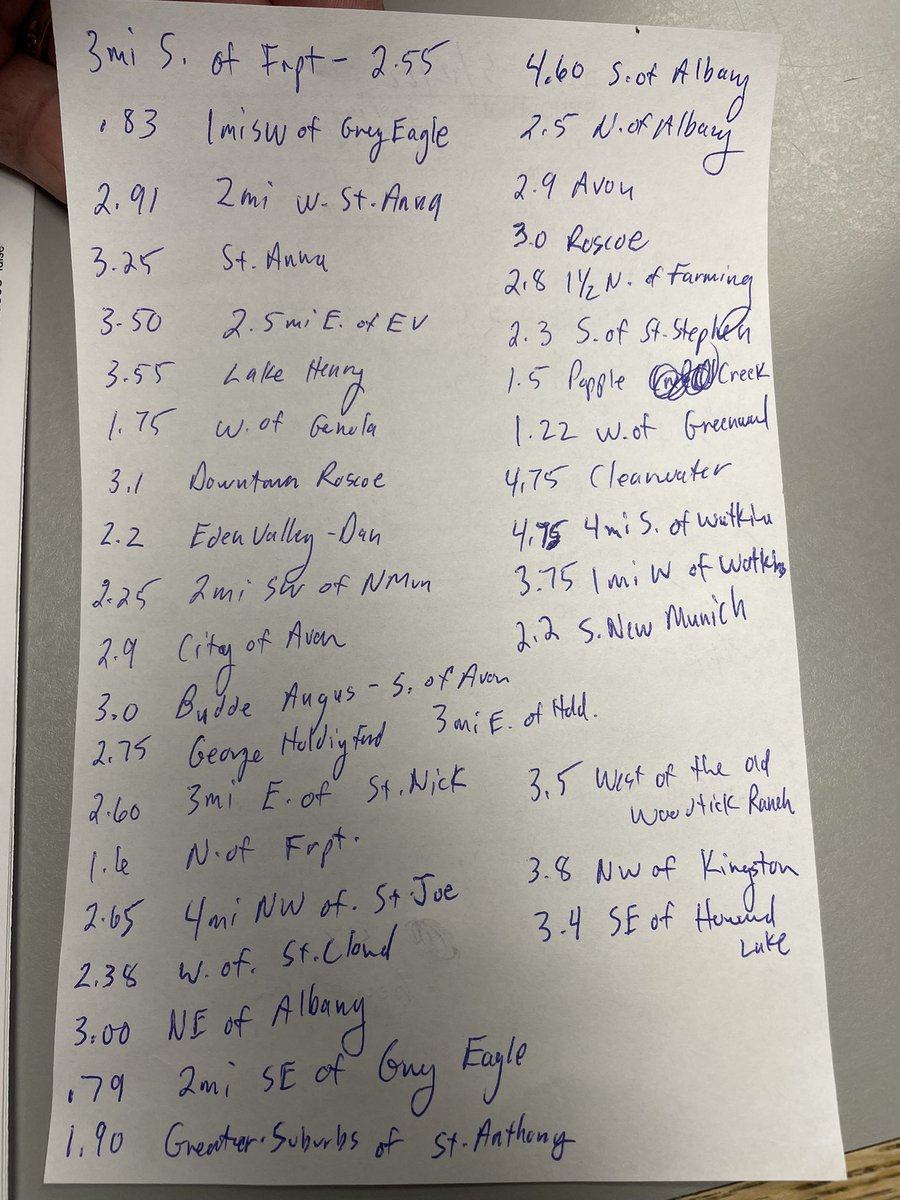 3mi S. of Frpt - 2.55
.83 1mi SW of Grey Eagle
2.91 2mi W. St. Anna
3.25 St. Anna
3.50 2.5mi E. of EV
3.55 Lake Henry
1.75 W. of Genola
3.1 Downtown Roscoe
2.2 Eden Valley - Dan
2.25 2mi SW of NMun
2.9 City of Avon
3.0 Budde Angus - S. of Avon
2.75 George Holdingford 3mi E. of Hold.
2.60 3mi E. of St. Nick
1.6 N. of Frpt.
2.65 4mi NW of. St. Joe
2.38 W. of. St. Cloud
3.00 NE of Albany
.79 2mi SE of Grey Eagle
1.90 Greater Suburbs of St. Anthony
4.60 S. of Albany
2.5 N. of Albany
2.9 Avon
3.0 Roscoe
2.8 1 1/2 N. of Farming
2.3 S. of St. Stephen
1.5 Popple Creek
1.22 W. of Greenwald
4.75 Clearwater
4.75 4mi S. of Watkins
3.75 1mi W of Watkins
2.2 S. New Munich
3.5 West of the old
Woodtick Ranch
3.8 NW of Kingston
3.4 SE of Howard
Lake